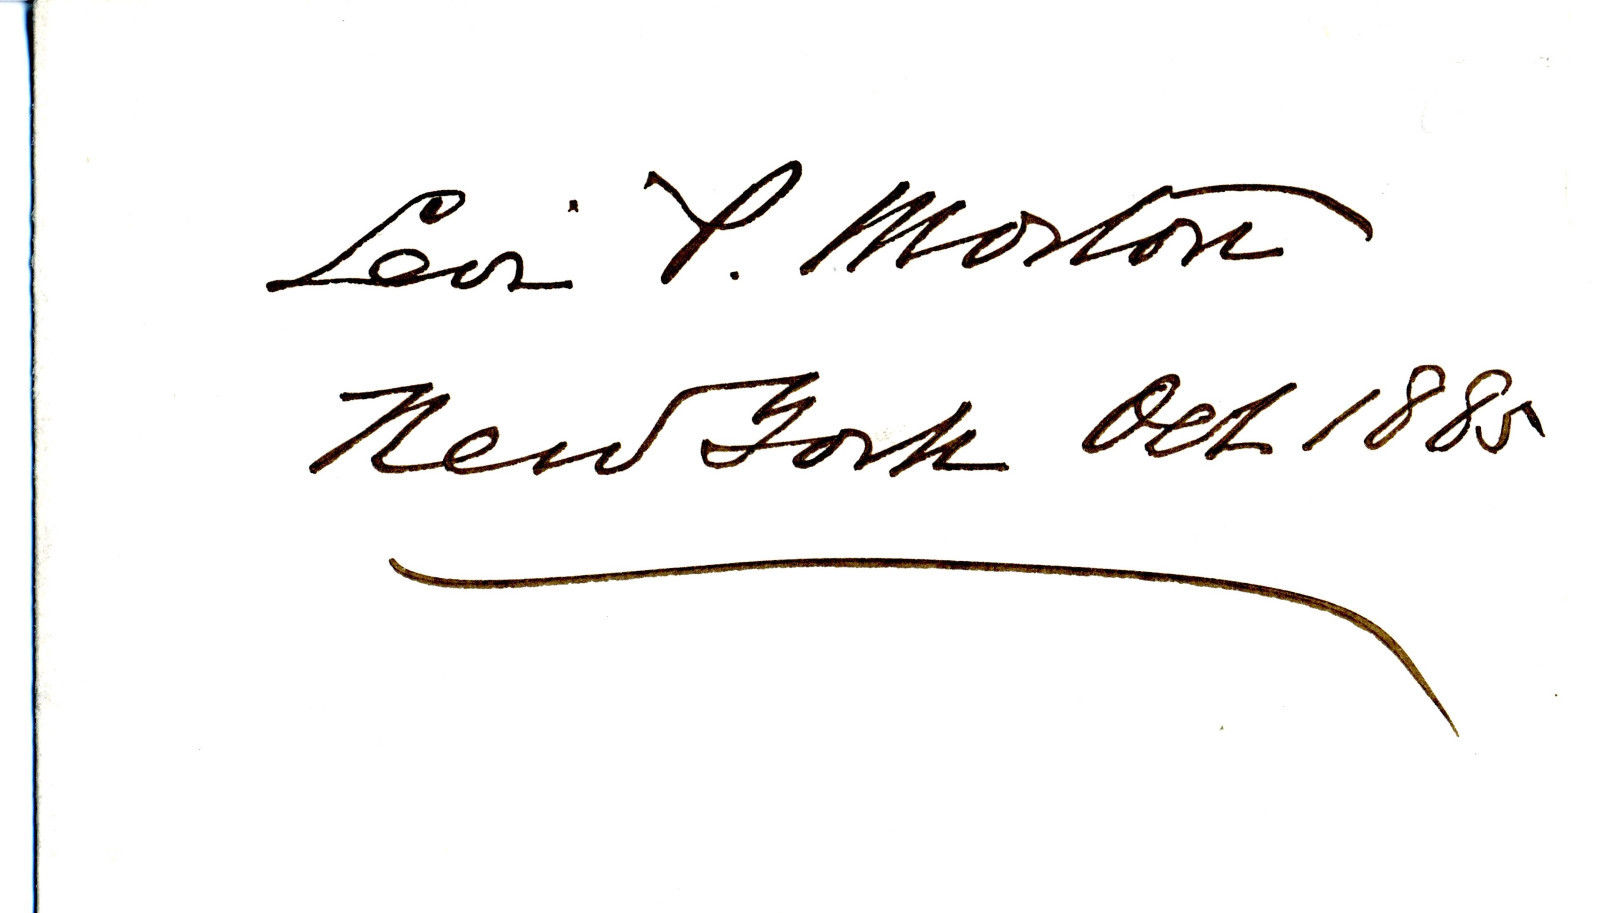 Levi P. Morton
New York Oct 1885